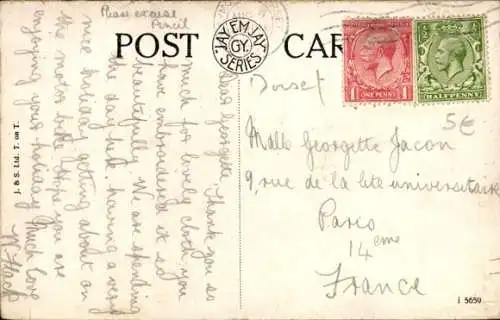 Please excuse
Pencil
POST CARD
JAY EM JAY
GY.
SERIES
Dorset
ONE PENNY
HALFPENNY
5€
Dear Georgette. Thank you so
much for lovely cloth you
have embroidered it so
beautifully. We are spending
the day here. having a very
nice holiday getting about on
the motor bike. Hope you are
enjoying your holiday. Much love
Melle Georgette Jacon
9, rue de la Cité universitaire
Paris
14eme
France
J. & S. Ltd. T. on T.
i 5659